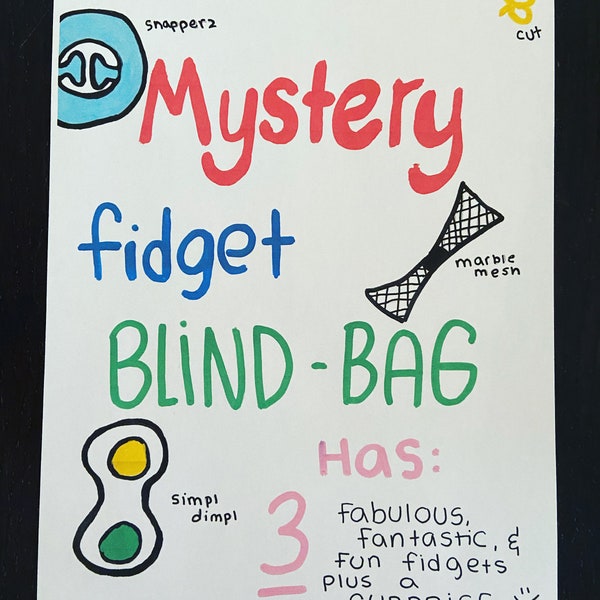 snapperz
cut
Mystery
fidget
marble
mesh
BLiND-BAG
Has:
simpl
dimpl
3
fabulous,
fantastic, &
fun fidgets
plus a
SURPRISE